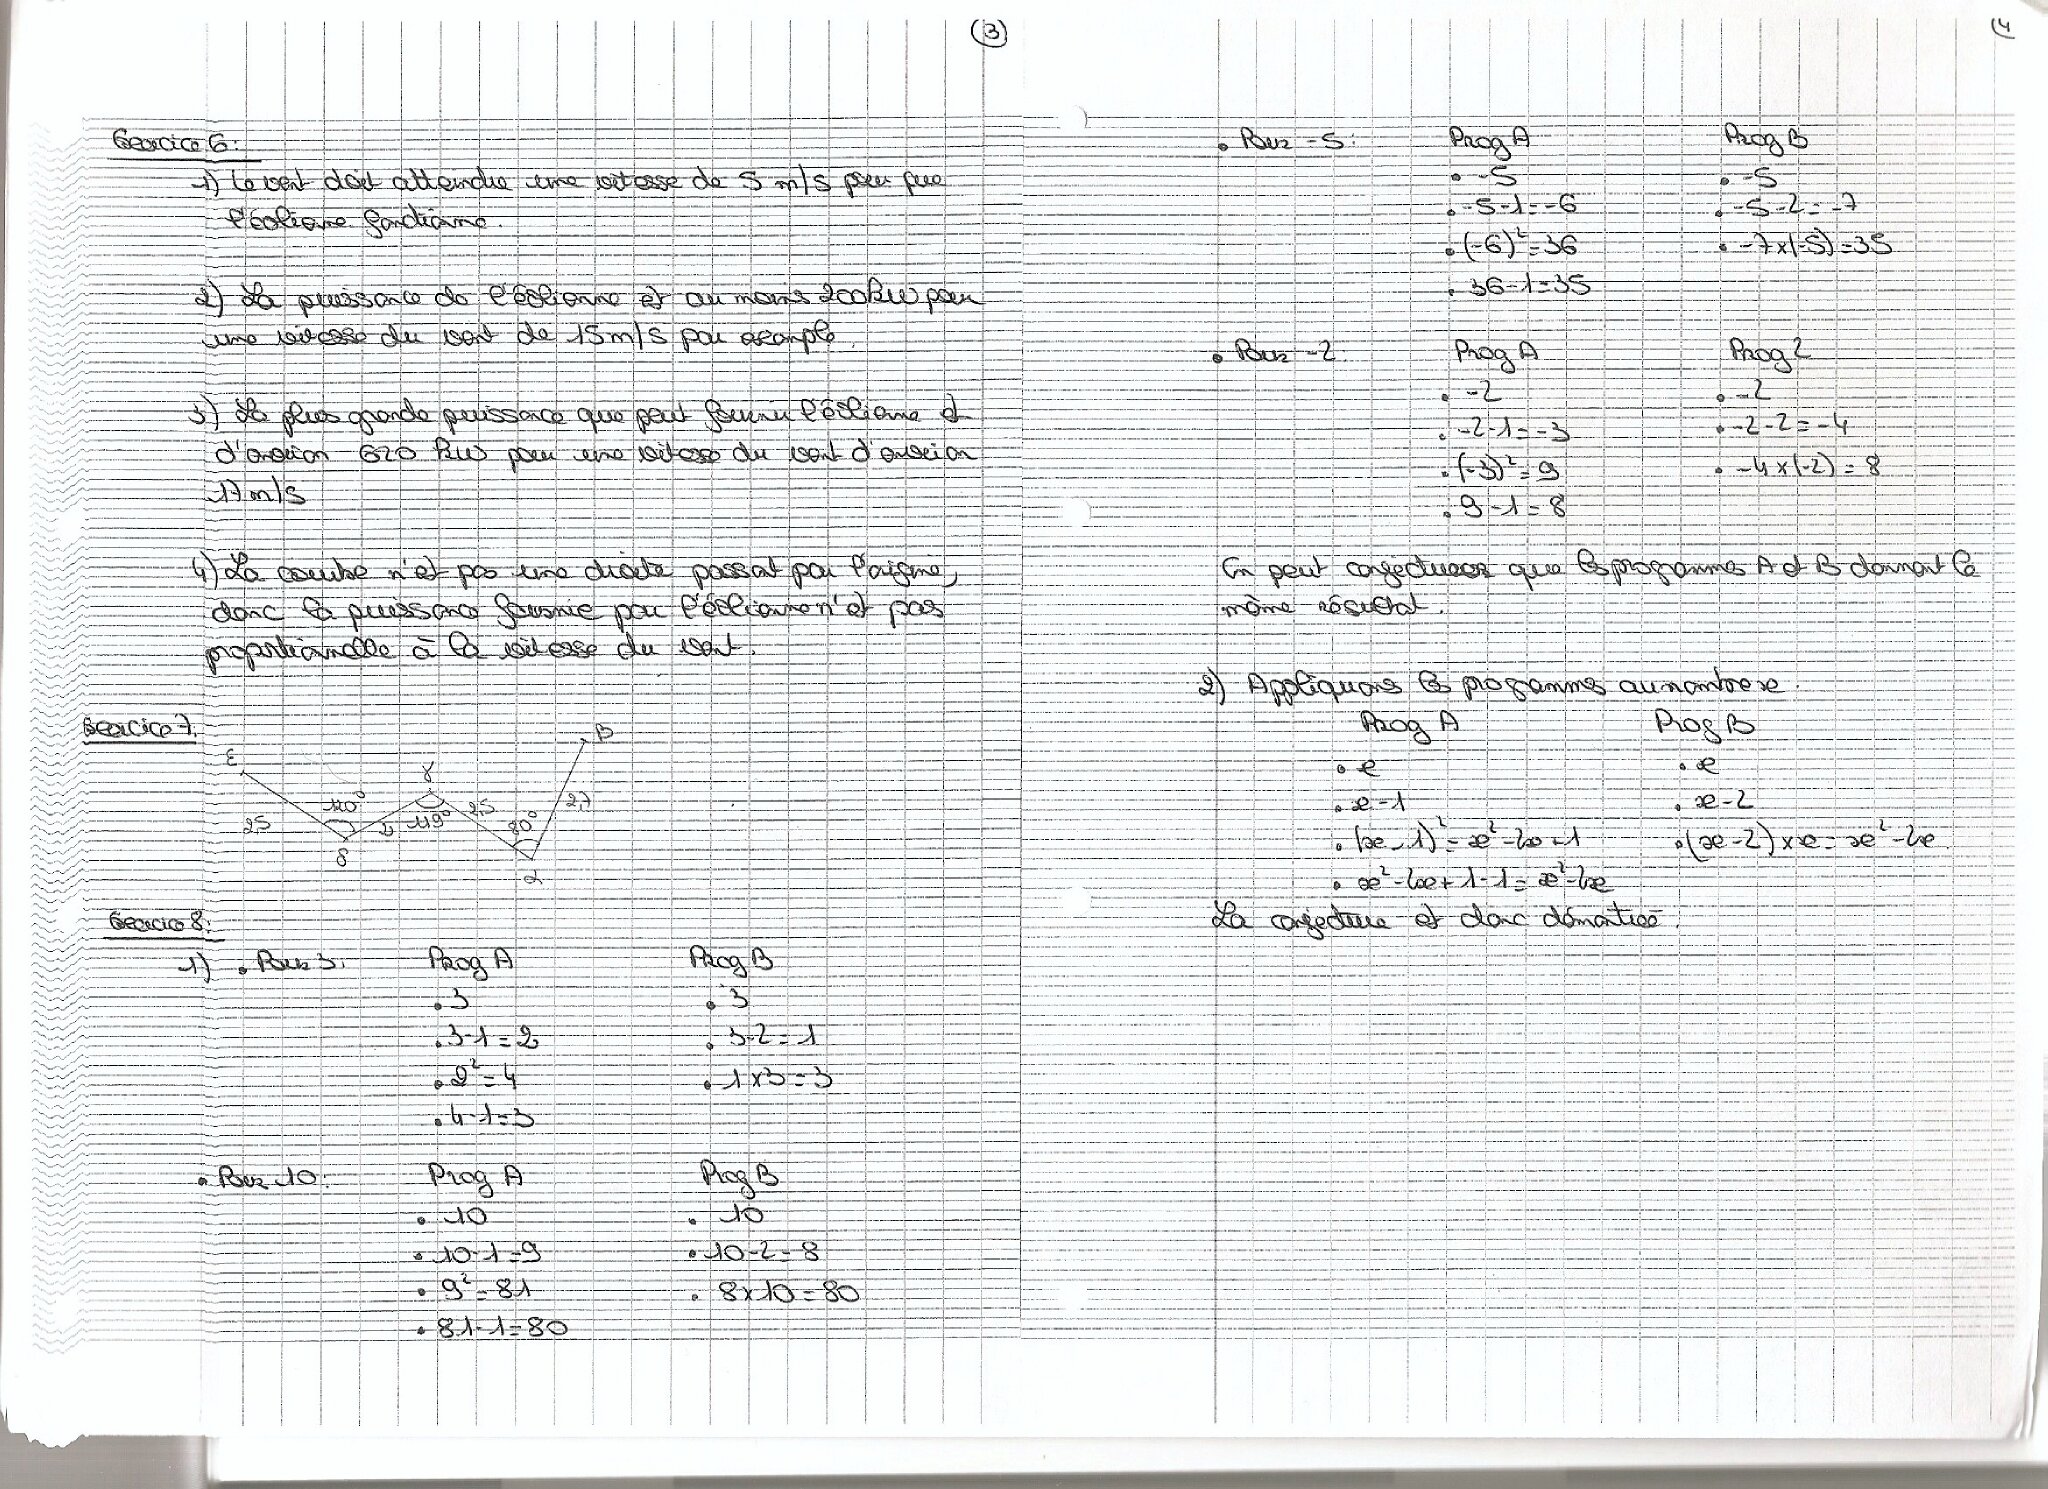 3
Exercice 6:
1) Le vent doit atteindre une vitesse de 5 m/s pour que
l'éolienne fonctionne.
2) La puissance de l'éolienne est au moins 200 kW pour
une vitesse du vent de 15 m/s par exemple.
3) La plus grande puissance que peut fournir l'éolienne est
d'environ 620 kW pour une vitesse du vent d'environ
17 m/s
4) La courbe n'est pas une droite passant par l'origine,
donc la puissance fournie par l'éolienne n'est pas
proportionnelle à la vitesse du vent.
Exercice 7.
ε
γ
B
120°
2,5
2
119°
2,5
80°
2,7
δ
α
Exercice 8:
1) • Pour 3: Prog A Prog B
• 3 • 3
• 3-1=2 • 3-2=1
• 2²=4 • 1×3=3
• 4-1=3
• Pour 10: Prog A Prog B
• 10 • 10
• 10-1=9 • 10-2=8
• 9²=81 • 8×10=80
• 81-1=80
4
• Pour -5: Prog A Prog B
• -5 • -5
• -5-1=-6 • -5-2=-7
• (-6)²=36 • -7×(-5)=35
• 36-1=35
• Pour -2. Prog A Prog 2
• -2 • -2
• -2-1=-3 • -2-2=-4
• (-3)²=9 • -4×(-2)=8
• 9-1=8
On peut conjecturer que les programmes A et B donnent le
même résultat.
2) Appliquons les programmes au nombre x.
Prog A Prog B
• x • x
• x-1 • x-2
• (x-1)²=x²-2x+1 • (x-2)×x=x²-2x
• x²-2x+1-1=x²-2x
La conjecture est donc démontrée.